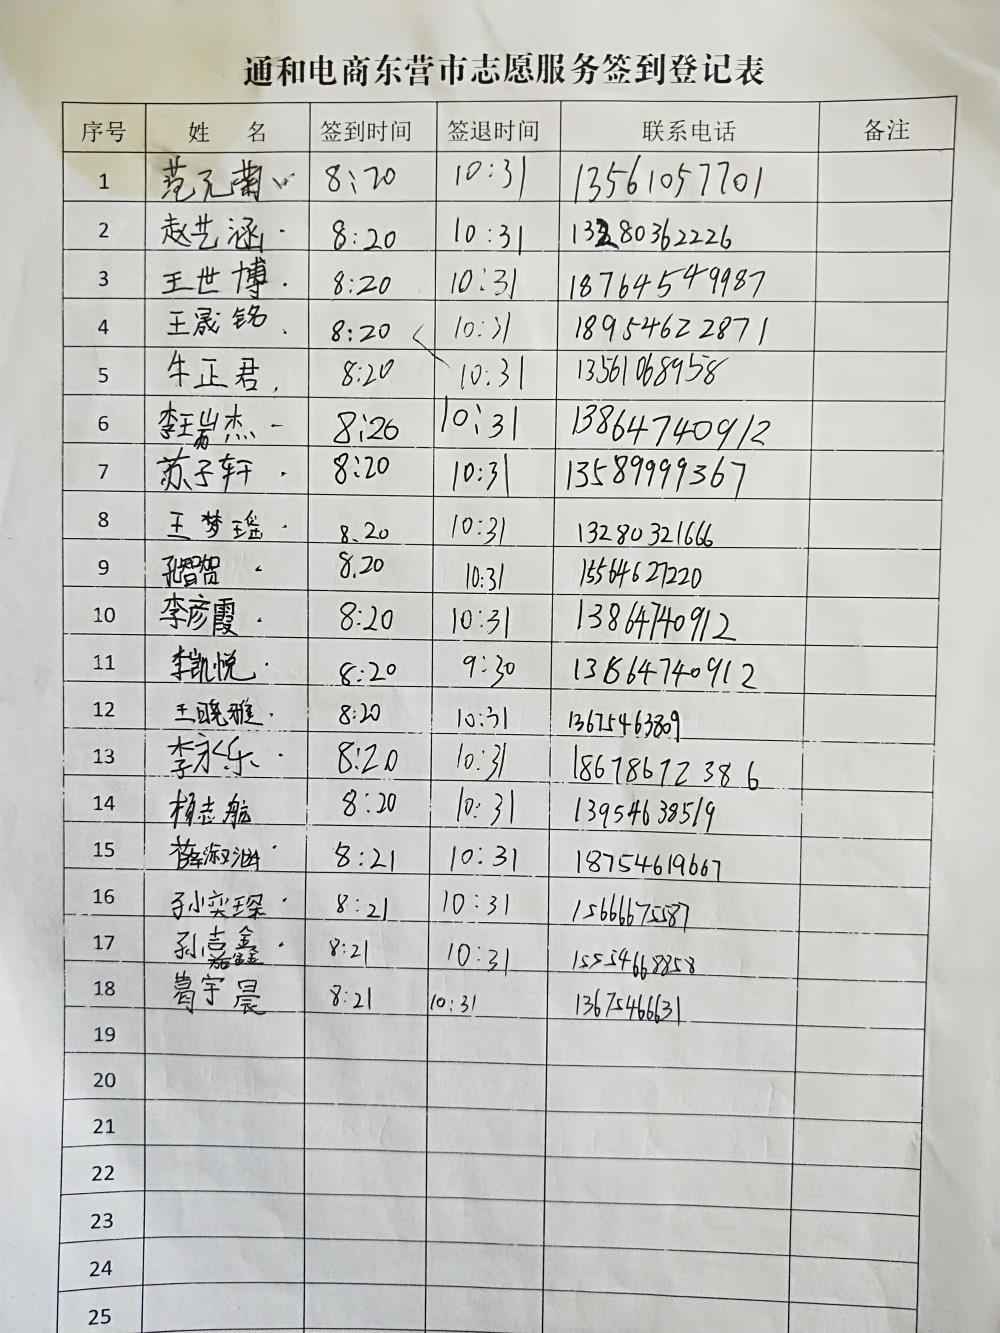 通和电商东营市志愿服务签到登记表
序号 姓 名 签到时间 签退时间 联系电话 备注
1 范元菊 8:20 10:31 13561057701
2 赵艺涵 8:20 10:31 13280362226
3 王世博 8:20 10:31 18764549987
4 王晟铭 8:20 10:31 18954622871
5 牛正君 8:20 10:31 13561068958
6 李王岩杰 8:20 10:31 13864740912
7 苏子轩 8:20 10:31 13589999367
8 王梦瑶 8.20 10:31 13280321666
9 孔智贺 8.20 10:31 15564627220
10 李彦霞 8:20 10:31 13864740912
11 李凯悦 8:20 9:30 13864740912
12 王晓雅 8:20 10:31 13675463809
13 李永乐 8:20 10:31 18678672386
14 杨志航 8:20 10:31 13954638519
15 薛淑 8:21 10:31 18754619667
16 孙奕琛 8:21 10:31 15666675587
17 孙嘉鑫 8:21 10:31 15554668858
18 葛宇晨 8:21 10:31 13675466631
19
20
21
22
23
24
25